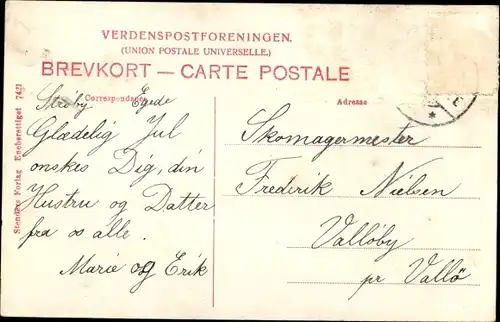 VERDENSPOSTFORENINGEN.
(UNION POSTALE UNIVERSELLE.)
BREVKORT — CARTE POSTALE
Correspondance
Adresse
Strøby Egede
Glædelig Jul
ønskes Dig, din
Hustru og Datter
fra os alle.
Marie og Erik
Skomagermester
Frederik Nielsen
Vallöby
pr Vallö
Stenders Forlag Eneberettiget 7421